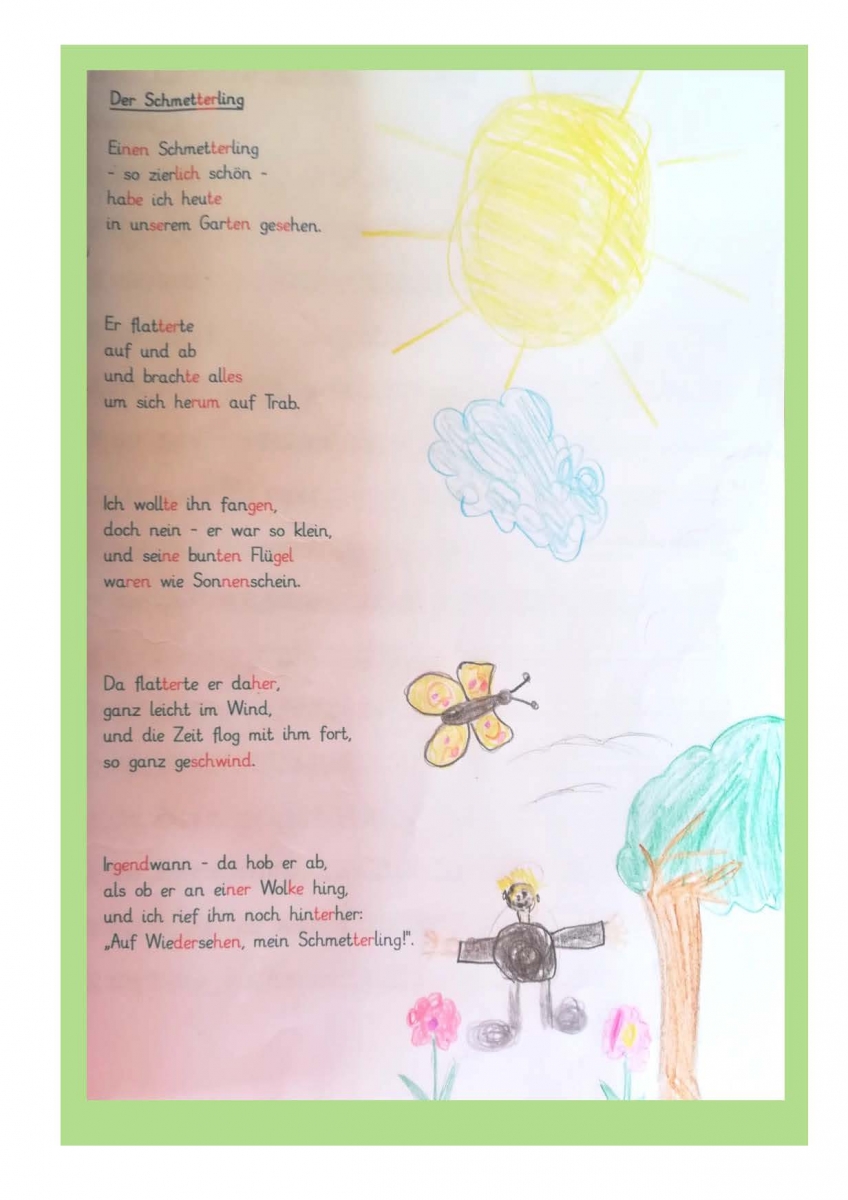 Der Schmetterling
Einen Schmetterling
- so zierlich schön -
habe ich heute
in unserem Garten gesehen.
Er flatterte
auf und ab
und brachte alles
um sich herum auf Trab.
Ich wollte ihn fangen,
doch nein - er war so klein,
und seine bunten Flügel
waren wie Sonnenschein.
Da flatterte er daher,
ganz leicht im Wind,
und die Zeit flog mit ihm fort,
so ganz geschwind.
Irgendwann - da hob er ab,
als ob er an einer Wolke hing,
und ich rief ihm noch hinterher:
„Auf Wiedersehen, mein Schmetterling!".